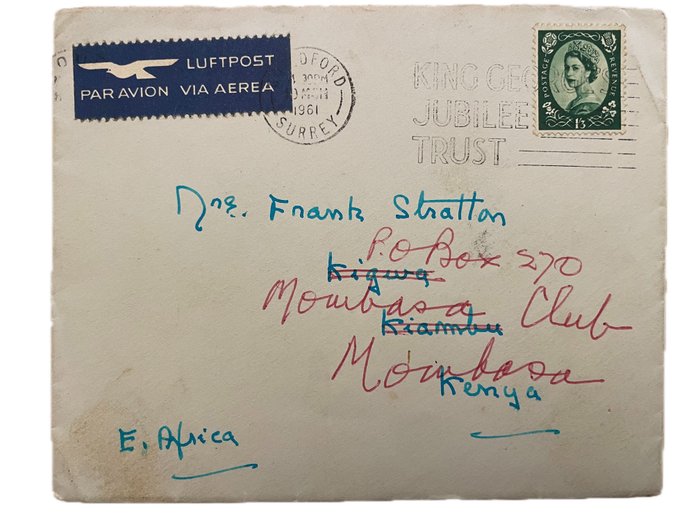 LUFTPOST
PAR AVION VIA AEREA
1961
SURREY
KING GEO
JUBILEE
TRUST
POSTAGE
REVENUE
1/3
Mrs. Frank Stratton
P.O Box 270
Kigwa
Mombasa Club
Kiambu
Mombasa
Kenya
E. Africa